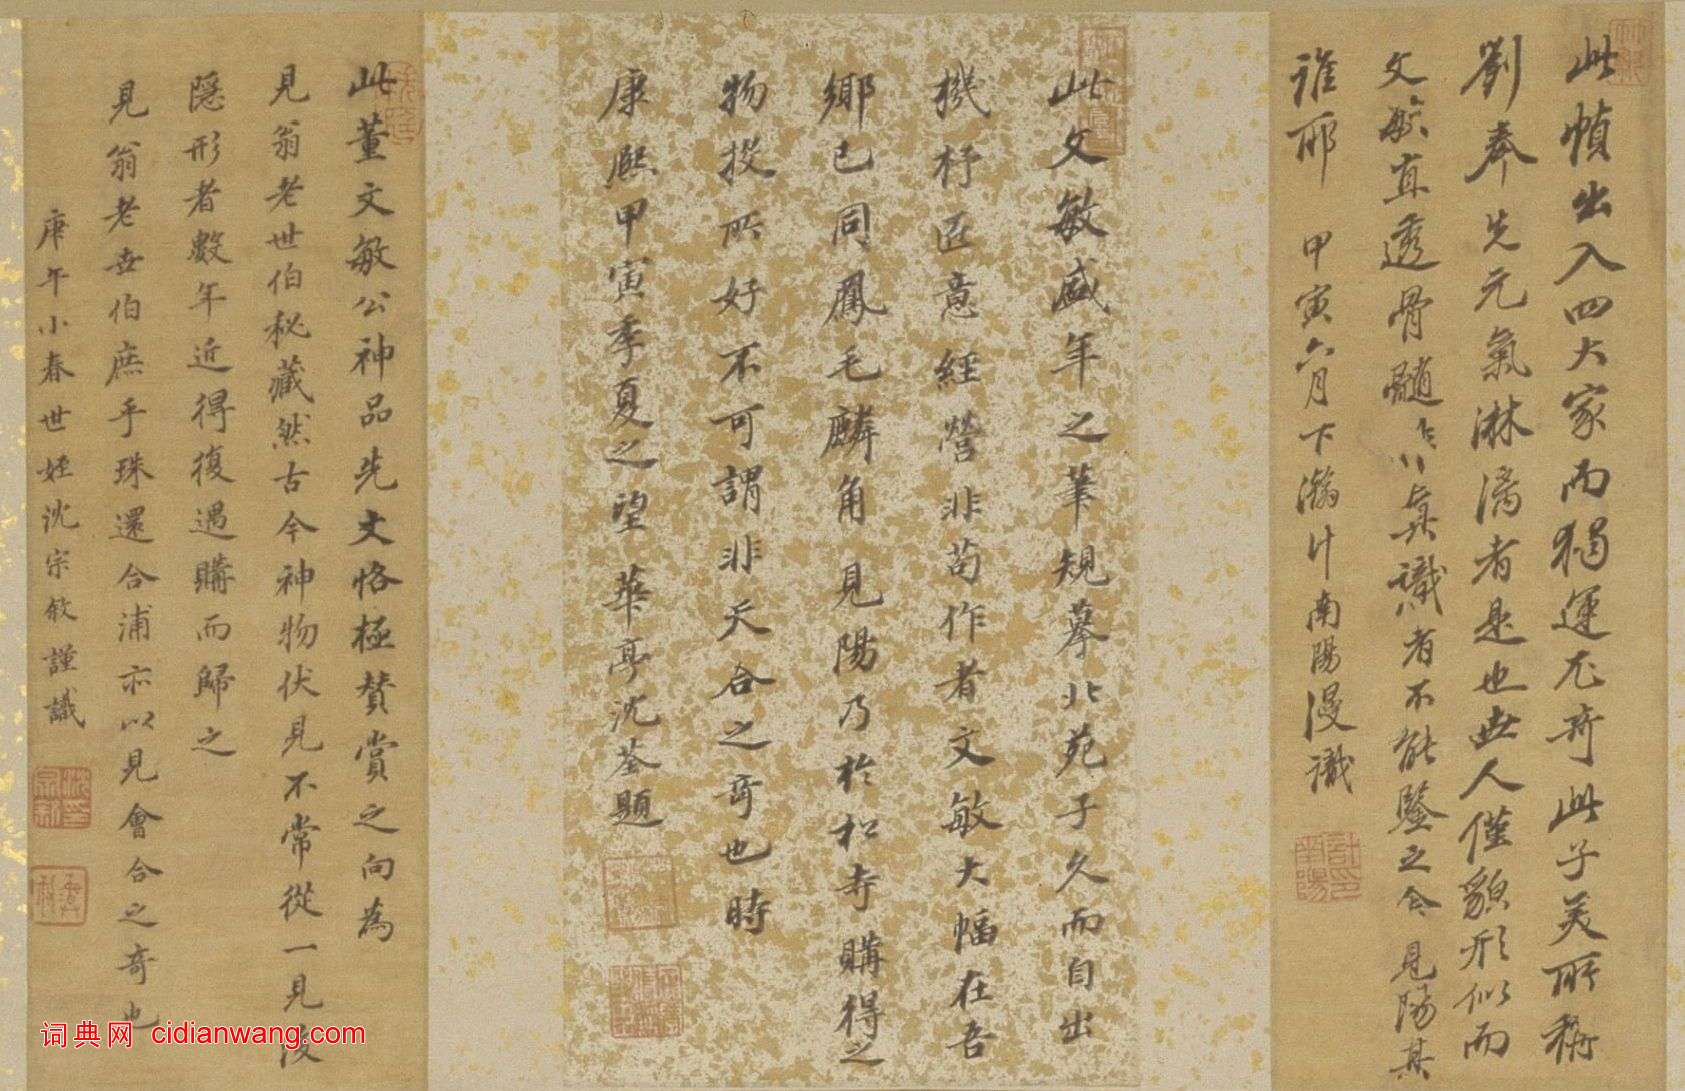 此幀出入四大家而獨運尤奇此子美所稱
劉奉先元氣淋漓者是也世人僅貌形似而
文敏直透骨髓 真識者不能鑒之今見陽其
誰耶 甲寅六月下瀚 計南陽漫識
計印南陽
此文敏盛年之筆規摹北苑子久而自出
機杼匠意經營非苟作者文敏大幅在吾
鄉已同鳳毛麟角見陽乃於松寺購得之
物投所好不可謂非天合之奇也時
康熙甲寅季夏之望 華亭沈荃題
此董文敏公神品先文恪極贊賞之向為
見翁老世伯秘藏然古今神物伏見不常從一見後
隱形者數年近得復遇購而歸之
見翁老世伯庶乎珠還合浦亦以見會合之奇也
庚午小春世姪沈宗敘謹識
词典网 cidianwang.com